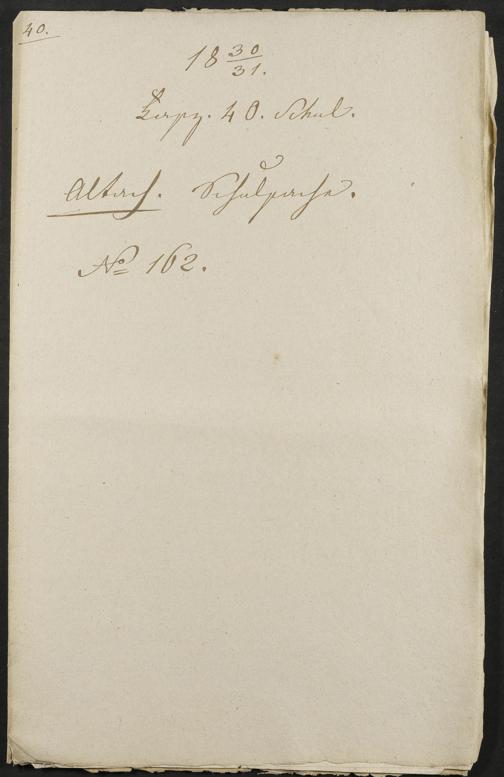 40.
18 30/31.
Fasz. 40. Schul.
Altach. Schulsache.
No 162.